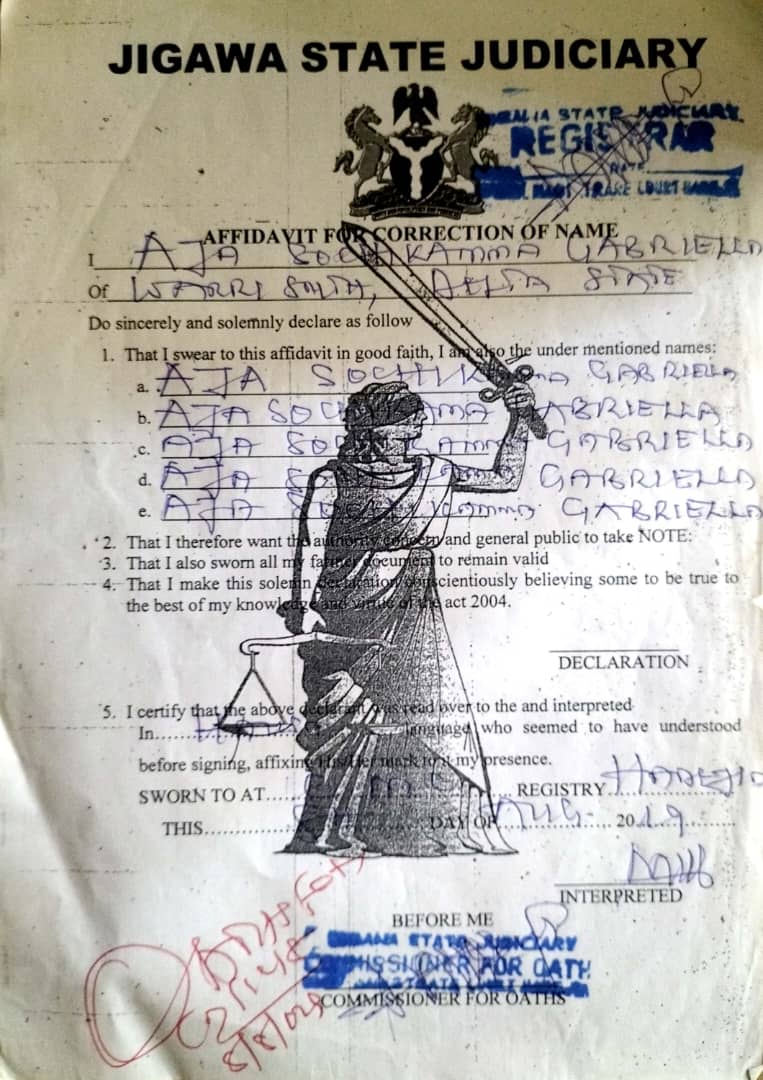 JIGAWA STATE JUDICIARY
STATE JUDICIARY
REGISTRAR
DATE
AFFIDAVIT FOR CORRECTION OF NAME
I AJA SOCHIKAMMA GABRIELLA
Of WARRI SOUTH, DELTA STATE
Do sincerely and solemnly declare as follow
1. That I swear to this affidavit in good faith, I am also the under mentioned names:
a. AJA SOCHIKamma GABRIELLA
b. AJA GABRIELLA
c. AJA GABRIELLA
d. AJA GABRIELLA
e. AJA GABRIELLA
2. That I therefore want the authority concern and general public to take NOTE:
3. That I also sworn all my farmer document to remain valid
4. That I make this solemn declaration conscientiously believing some to be true to
the best of my knowledge and virtue of the act 2004.
DECLARATION
5. I certify that the above declarant was read over to the and interpreted
In.................. language who seemed to have understood
before signing, affixing His/Her mark to it my presence.
SWORN TO AT.................. REGISTRY HADEJIA
THIS.................. DAY OF AUG. 2019
INTERPRETED
BEFORE ME
STATE JUDICIARY
COMMISSIONER FOR OATH
COMMISSIONER FOR OATHS